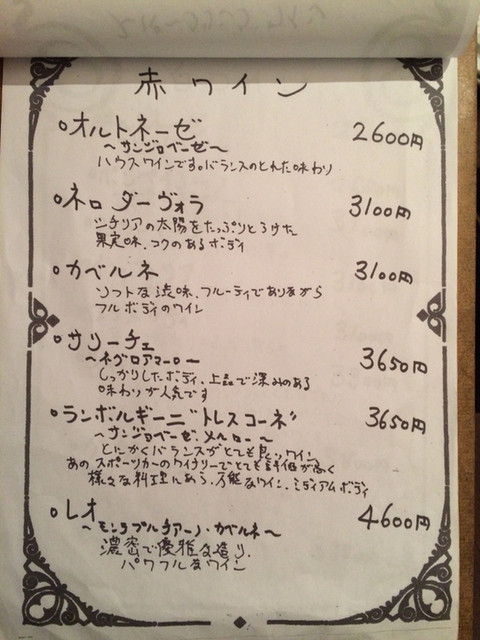 赤ワイン
オルトネーゼ 2600円
～サンジョベーゼ～
ハウスワインです。バランスのとれた味わり
ネロ ダーヴォラ 3100円
シチリアの太陽をたっぷりとうけた
果実味、コクのあるボディ
カベルネ 3100円
ソフトな渋味、フルーティでありながら
フルボディのワイン
サリーチェ 3650円
～ネグロアマーロー
しっかりしたボディ、上品で深みのある
味わりが人気です
ランボルギーニ"トレスコーネ" 3650円
～サンジョベーゼ、メルロー～
とにかくバランスがとても良いワイン。
あのスポーツカーのワイナリーでとても評価が高く
様々な料理にあう、万能なワイン、ミディアムボディ
レオ 4600円
～モンテプルチアーノ・カベルネ～
濃密で優雅な造り、
パワフルなワイン